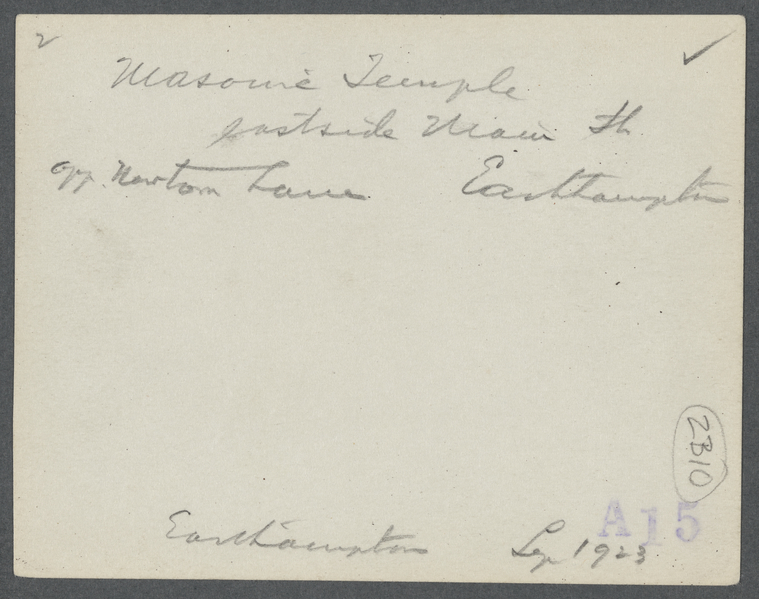 2
Masonic Temple
eastside Main St.
opp. Newtown Lane Easthampton
2B10
A15
Easthampton Sep 1923